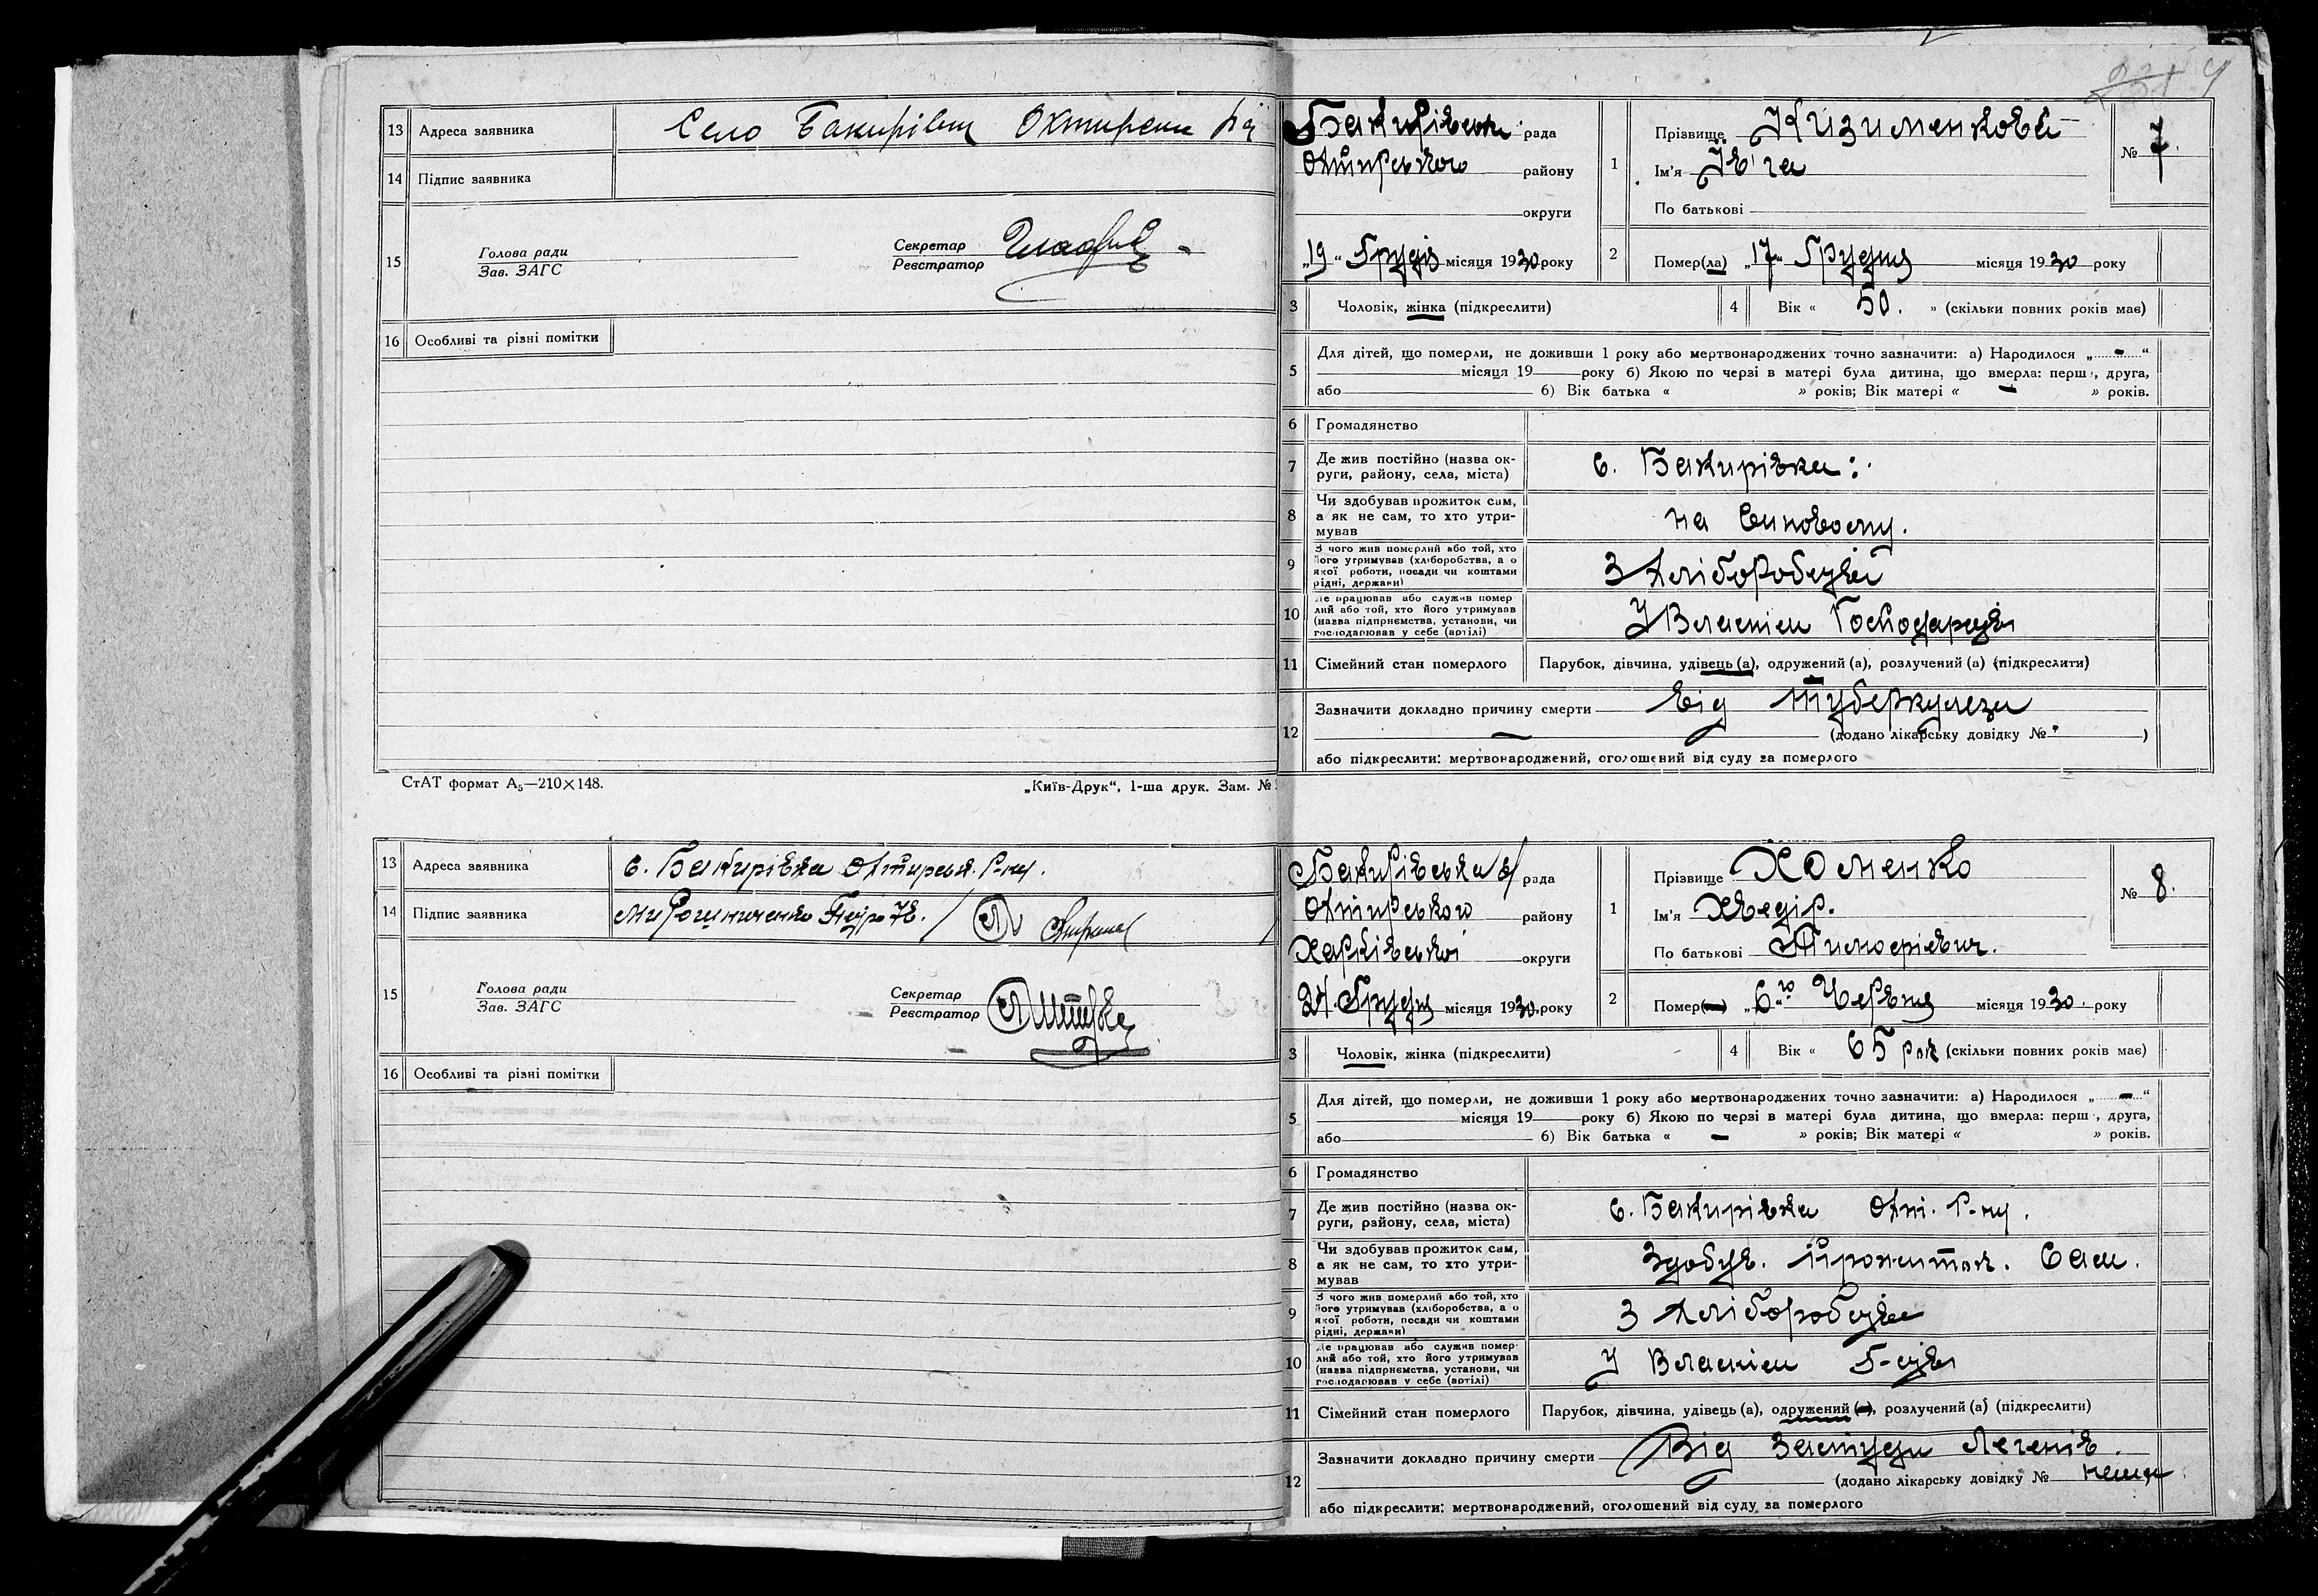 13 Адреса заявника Село Бакирівц Охтирськ
14 Підпис заявника
15 Голова ради
Зав. ЗАГС
Секретар
Реєстратор
16 Особливі та різні помітки
СтАТ формат А₅—210×148. „Київ-Друк“, 1-ша друк. Зам. №
Бакирівська рада
Охтирського району
округи
„19“ Грудня місяця 1930 року
1 Прізвище Кизименкова
Ім'я Ївга
По батькові
№ 7.
2 Помер(ла) „17“ Грудня місяця 1930 року
3 Чоловік, жінка (підкреслити)
4 Вік « 50. » (скільки повних років має)
5 Для дітей, що померли, не доживши 1 року або мертвонароджених точно зазначити: а) Народилося „ - “
місяця 19 року б) Якою по черзі в матері була дитина, що вмерла: перш, друга,
або б) Вік батька « » років; Вік матері « - » років.
6 Громадянство
7 Де жив постійно (назва округи, району, села, міста) с. Бакирівка:
8 Чи здобував прожиток сам,
а як не сам, то хто утри-
мував
на
9 З чого жив померлий або той, хто
його утримував (хліборобства, а о
якої роботи, посади чи коштами
рідні, держави)
З Хліборобцтва
10 Де працював або служив помер
лий або той, хто його утримував
(назва підприємства, установи, чи
господарював у себе (артілі)
У Власнім Господарцтві
11 Сімейний стан померлого Парубок, дівчина, удівець (а), одружений (а), розлучений (а) (підкреслити)
12 Зазначити докладно причину смерти Від туберкульоза
(додано лікарську довідку № )
або підкреслити: мертвонароджений, оголошений від суду за померлого
13 Адреса заявника с. Бакирівка Охтирськ. Р-ну.
14 Підпис заявника Мирошниченко Петро
15 Голова ради
Зав. ЗАГС
Секретар
Реєстратор
16 Особливі та різні помітки
Бакирівська рада
Охтирського району
Харківської округи
24 Грудня місяця 1930 року
1 Прізвище Хоменко
Ім'я Хведір.
По батькові Тимофієвич.
№ 8.
2 Помер „6го Червня місяця 1930 року
3 Чоловік, жінка (підкреслити)
4 Вік « 65 рок (скільки повних років має)
5 Для дітей, що померли, не доживши 1 року або мертвонароджених точно зазначити: а) Народилося „ - “
місяця 19 року б) Якою по черзі в матері була дитина, що вмерла: перш, друга,
або б) Вік батька « - » років; Вік матері « » років.
6 Громадянство
7 Де жив постійно (назва ок-
руги, району, села, міста)
с. Бакирівка Охт. Р-ну.
8 Чи здобував прожиток сам,
а як не сам, то хто утри-
мував
Здобув. прожиток. Сам.
9 З чого жив померлий або той, хто
його утримував (хліборобства, а о
якої роботи, посади чи коштами
рідні, держави)
З Хліборобцтва
10 Де працював або служив помер-
лий або той, хто його утримував
(назва підприємства, установи, чи
господарював у себе (артілі)
У Власнім Г-цтві
11 Сімейний стан померлого Парубок, дівчина, удівець (а), одружений, розлучений (а) (підкреслити)
12 Зазначити докладно причину смерти Від Застуди Легенів.
(додано лікарську довідку № нема)
або підкреслити: мертвонароджений, оголошений від суду за померлого